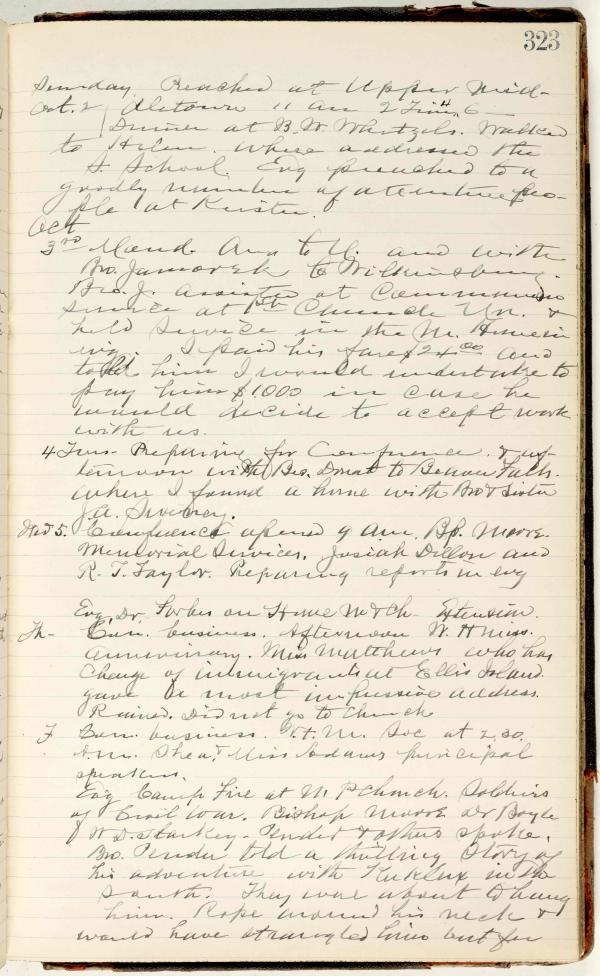 323
Sunday Preached at Upper Mid-
Oct. 2 dletown 11 am 2 Tim 4, 6
Dinner at B. W. Whetzels. Walked
to Helen. where addressed the
S. School. Evg preached to a
goodly number of attentive peo-
ple at Kuster.
Oct
3rd Mond. Ana to U. and with
Bro. Jamarek to Wilkinsburg.
Bro. J. assisted at Communion
service at 1st Church Un. &
held service in the M.
evg. I paid his fare $24.00 and
told him I would undertake to
pay him $1000 in case he
would decide to accept work
with us.
4 Tues. Preparing for Conference. & af-
ternoon with Bro. to Beaver Falls.
where I found a home with Bro & Sister
J. A. Sweeney.
Wed 5. Conference opened 9 am. Bp. Moore.
Memorial Services. Josiah Dillon and
R. T. Taylor. Preparing reports in evg
Evg. Dr. Forbes on Home M & Ch. Extension.
Th- Con. business. Afternoon W. H Miss.
anniversary. Miss Matthews who has
charge of immigrants at Ellis Island.
gave a most impressive address.
Rained. Did not go to Church
F Con. business. W. H. M. Soc at 2.30.
Miss Adams principal
speakers.
Evg Camp Fire at M. P Church. Soldiers
of Civil War. Bishop Moore Dr Boyle
W D. Starkey- Pender & others spoke.
Bro. Pender told a thrilling story of
his adventure with Kuklux in the
South. They were about to hang
him. Rope around his neck &
would have strangled him but for